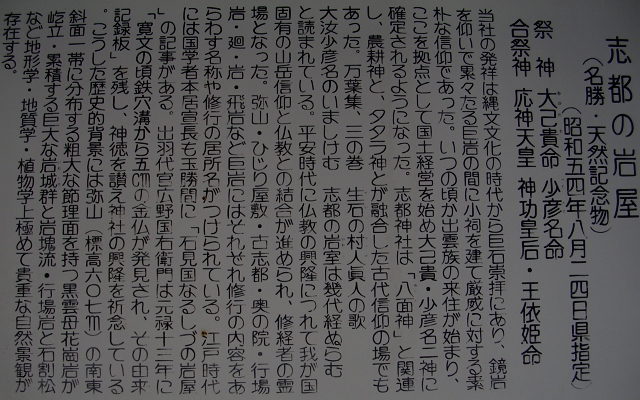 志都の岩屋
(名勝・天然記念物)
(昭和五四年八月二四日県指定)
祭神 大己貴命 少彦名命
合祭神 応神天皇 神功皇后・玉依姫命
当社の発祥は縄文文化の時代から巨石崇拝にあり、鏡岩
を仰いで累々たる巨岩の間に小祠を建て厳威に対する素
朴な信仰であった。いつの頃か出雲族の来住が始まり、
ここを拠点として国土経営を始め大己貴・少彦名二神に
確定されるようになった。志都神社は「八面神」と関連
し、農耕神と、タタラ神とが融合した古代信仰の場でも
あった。万葉集、三の巻 生石の村人眞人の歌
大汝少彦名のいましけむ 志都の岩室は幾代経ぬらむ
と読まれている。平安時代に仏教の興隆につれて我が国
固有の山岳信仰と仏教との結合が進められ、修経者の霊
場となった。弥山・ひじり屋敷・古志都・奥の院・行場
岩・廻・岩・飛岩など巨岩にはそれぞれ修行の内容をあ
らわす名称や修行の居所名がつけられている。江戸時代
には国学者本居宣長も玉勝間に「石見国なるしづの岩屋
」の記事がある。出羽代官広野国右衛門は元禄十三年に
「寛文の頃鉄穴溝から五㎝の金仏が発見され、その由来
記録板」を残し、神徳を讃え神社の興隆を祈念している
。こうした歴史的背景には弥山(標高六〇七m)の南東
斜面一帯に分布する粗大な節理面を持つ黒雲母花崗岩が
屹立・累積する巨大な岩城群と岩塊流・行場岩と石割松
など地形学・地質学・植物学上極めて貴重な自然景観が
存在する。